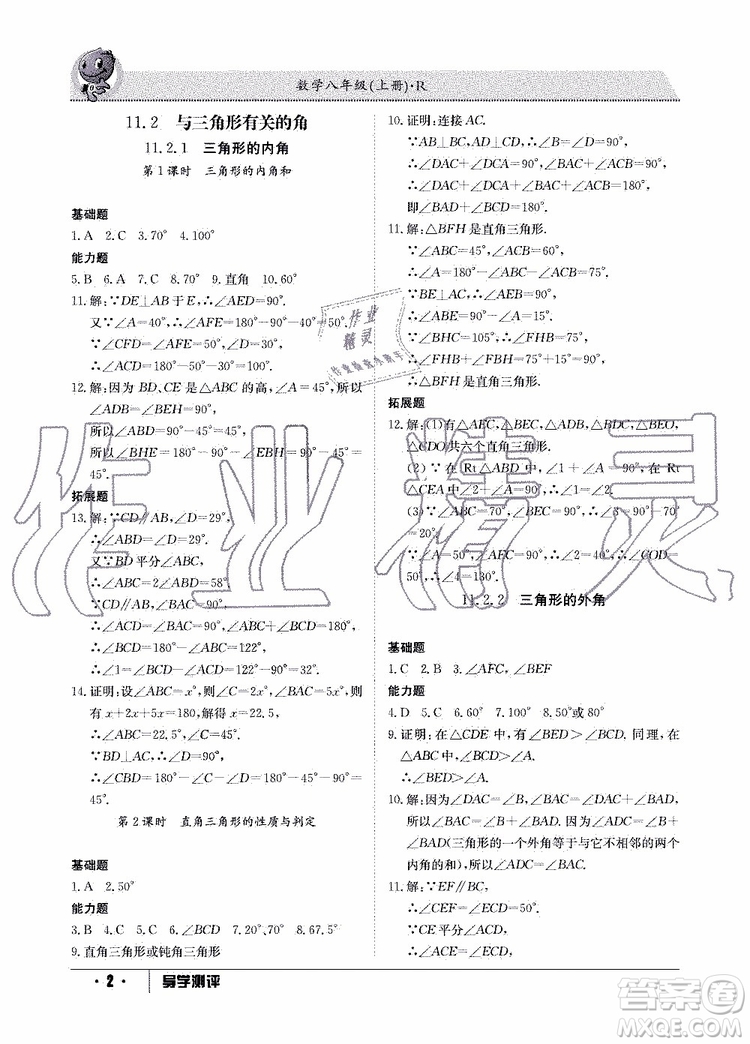 数学八年级(上册)·R
11.2 与三角形有关的角
11.2.1 三角形的内角
第1课时 三角形的内角和
基础题
1.A 2.C 3.70° 4.100°
能力题
5.B 6.A 7.C 8.70° 9.直角 10.60°
11.解:∵DE⊥AB于E,∴∠AED=90°.
又∵∠A=40°,∴∠AFE=180°-90°-40°=50°.
∵∠CFD=∠AFE,∴∠CFD=50°.
∴∠ACD=180°-50°-45°=85°.
12.解:因为BD、CE是△ABC的高,∠A=45°,所以
∠ADB=∠BEH=90°.
所以∠ABD=180°-90°-45°=45°.
所以∠BHE=180°-∠BEH-∠ABD=
45°.
拓展题
13.解:∵CD∥AB,∠D=29°,
∴∠ABD=∠D=29°.
又∵BD平分∠ABC,
∴∠ABC=2∠ABD=58°.
∵CD∥AB,
∴∠BCD+∠ABC=180°.
∴∠BCD=180°-∠ABC=122°.
∴∠1=∠BCD=122°.
14.证明:设∠ABC=x°,则∠C=2x°,∠BAC=5x°,则
有x+2x+5x=180,解得x=22.5,
∴∠ABC=22.5°,∠C=45°.
∵BD⊥AC,
∴∠CBD=180°-∠D-∠C=180°-90°-45°=
45°.
第2课时 直角三角形的性质与判定
基础题
1.A 2.50°
能力题
3.B 4.D 5.C 6.∠BCD 7.90° 8.67.5°
9.直角三角形或钝角三角形
10.证明:连接AC.
∵AB⊥BC,AD⊥DC,∴∠B=∠D=90°.
∴∠DAC+∠ACD=90°,∠BAC+∠ACB=90°.
∴∠DAC+∠ACD+∠BAC+∠ACB=180°,
即∠DAB+∠BCD=180°.
11.解:△BFH是直角三角形.
∵∠ABC=45°,∠ACB=75°,
∴∠A=180°-∠ABC-∠ACB=60°.
∵BE⊥AC,∴∠ABE=90°-∠A=30°.
∵∠BHC=105°,∴∠FHB=75°.
∴∠FHB+∠FBH=75°+30°=105°.
拓展题
12.解:(1)有△AEC,△BEC,△ADB,△BDC,△BEO,
△CDO共六个直角三角形.
(2)∵在Rt△ABD中,∠1+∠A=90°,在Rt
△CEA中∠2+∠A=90°,∴∠1=∠2.
(3)∵∠A=70°,∴∠1=∠2=∠3=90°-70°
=20°.
∴∠4=∠5=90°-40°=50°,∴∠COD=
50°.
11.2.2 三角形的外角
基础题
1.C 2.B 3.∠AFC,∠BEF
能力题
4.D 5.C 6.60° 7.100° 8.50°或80°
9.证明:在△CDE中,∠BED>∠BCD.同理,在
△ABC中,∠BCD>∠A.
∴∠BED>∠A.
10.解:因为∠DAC=∠B,
所以∠DAC+∠BAD=∠B+∠BAD,
所以∠BAC=∠B+∠BAD.因为∠ADC=∠B+
∠BAD(三角形的一个外角等于与它不相邻的两个
内角的和),所以∠ADC=∠BAC.
11.解:∵EF∥BC,
∴∠CEF=∠BCE=50°.
∵CE平分∠BCD,
∴∠ACE=∠BCE=50°.
·2· 导学测评
作业精灵
作业
精灵
答案圈
MXQE.COM